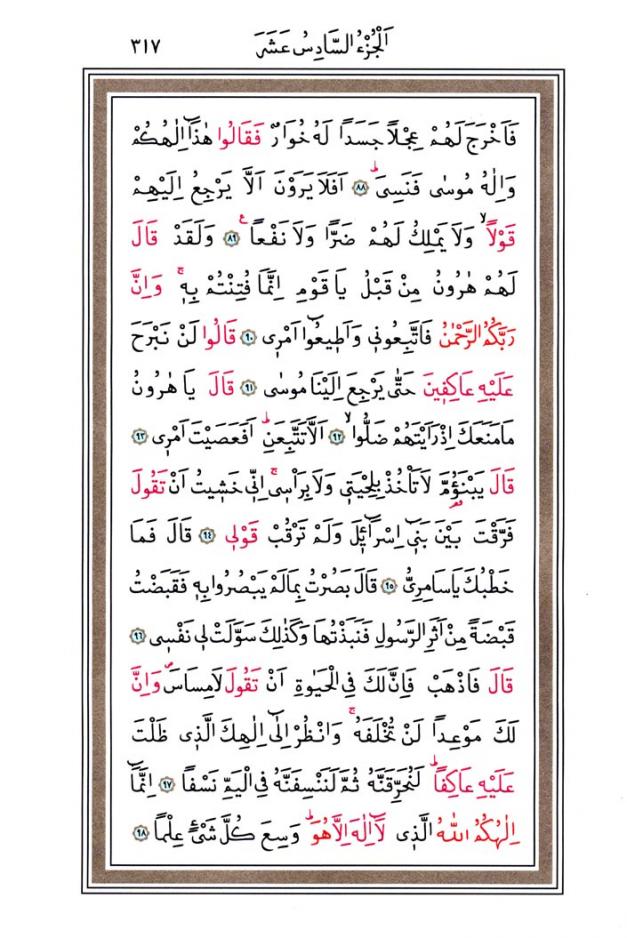 اَلْجُزْءُ السَّادِسُ عَشَرَ ٣١٧
فَاَخْرَجَ لَهُمْ عِجْلاً جَسَدًا لَهُ خُوَارٌ فَقَالُوا هٰذَٓا اِلٰهُكُمْ
وَاِلٰهُ مُوسٰى فَنَسِيَۜ ﴿٨٨﴾ اَفَلَا يَرَوْنَ اَلَّا يَرْجِعُ اِلَيْهِمْ
قَوْلاًۙ وَلَا يَمْلِكُ لَهُمْ ضَرًّا وَلَا نَفْعًا۟ ﴿٨٩﴾ وَلَقَدْ قَالَ
لَهُمْ هٰرُونُ مِنْ قَبْلُ يَا قَوْمِ اِنَّمَا فُتِنْتُمْ بِه۪ۚ وَاِنَّ
رَبَّكُمُ الرَّحْمٰنُ فَاتَّبِعُون۪ي وَاَط۪يعُٓوا اَمْر۪ي ﴿٩٠﴾ قَالُوا لَنْ نَبْرَحَ
عَلَيْهِ عَاكِف۪ينَ حَتّٰى يَرْجِعَ اِلَيْنَا مُوسٰى ﴿٩١﴾ قَالَ يَا هٰرُونُ
مَا مَنَعَكَ اِذْ رَاَيْتَهُمْ ضَلُّواۙ ﴿٩٢﴾ اَلَّا تَتَّبِعَنِۜ اَفَعَصَيْتَ اَمْر۪ي ﴿٩٣﴾
قَالَ يَبْنَؤُ۬مَّ لَا تَأْخُذْ بِلِحْيَت۪ي وَلَا بِرَأْس۪يۚ اِنّ۪ي خَش۪يتُ اَنْ تَقُولَ
فَرَّقْتَ بَيْنَ بَن۪ٓي اِسْرَٓائ۪لَ وَلَمْ تَرْقُبْ قَوْل۪ي ﴿٩٤﴾ قَالَ فَمَا
خَطْبُكَ يَا سَامِرِيُّ ﴿٩٥﴾ قَالَ بَصُرْتُ بِمَا لَمْ يَبْصُرُوا بِه۪ فَقَبَضْتُ
قَبْضَةً مِنْ اَثَرِ الرَّسُولِ فَنَبَذْتُهَا وَكَذٰلِكَ سَوَّلَتْ ل۪ي نَفْس۪ي ﴿٩٦﴾
قَالَ فَاذْهَبْ فَاِنَّ لَكَ فِي الْحَيٰوةِ اَنْ تَقُولَ لَا مِسَاسَۖ وَاِنَّ
لَكَ مَوْعِدًا لَنْ تُخْلَفَهُۚ وَانْظُرْ اِلٰٓى اِلٰهِكَ الَّذ۪ي ظَلْتَ
عَلَيْهِ عَاكِفًاۜ لَنُحَرِّقَنَّهُ ثُمَّ لَنَنْسِفَنَّهُ فِي الْيَمِّ نَسْفًا ﴿٩٧﴾ اِنَّمَٓا
اِلٰهُكُمُ اللّٰهُ الَّذ۪ي لَٓا اِلٰهَ اِلَّا هُوَۜ وَسِعَ كُلَّ شَيْءٍ عِلْمًا ﴿٩٨﴾